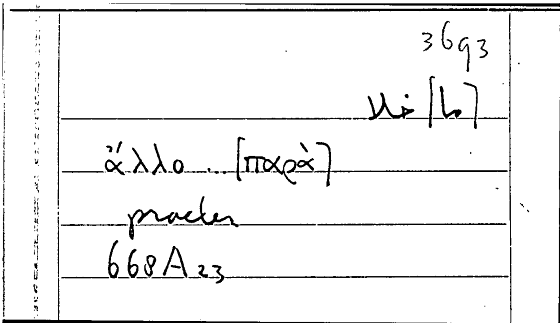 3693
ἄλλο ... [παρὰ]
praeter
668A23